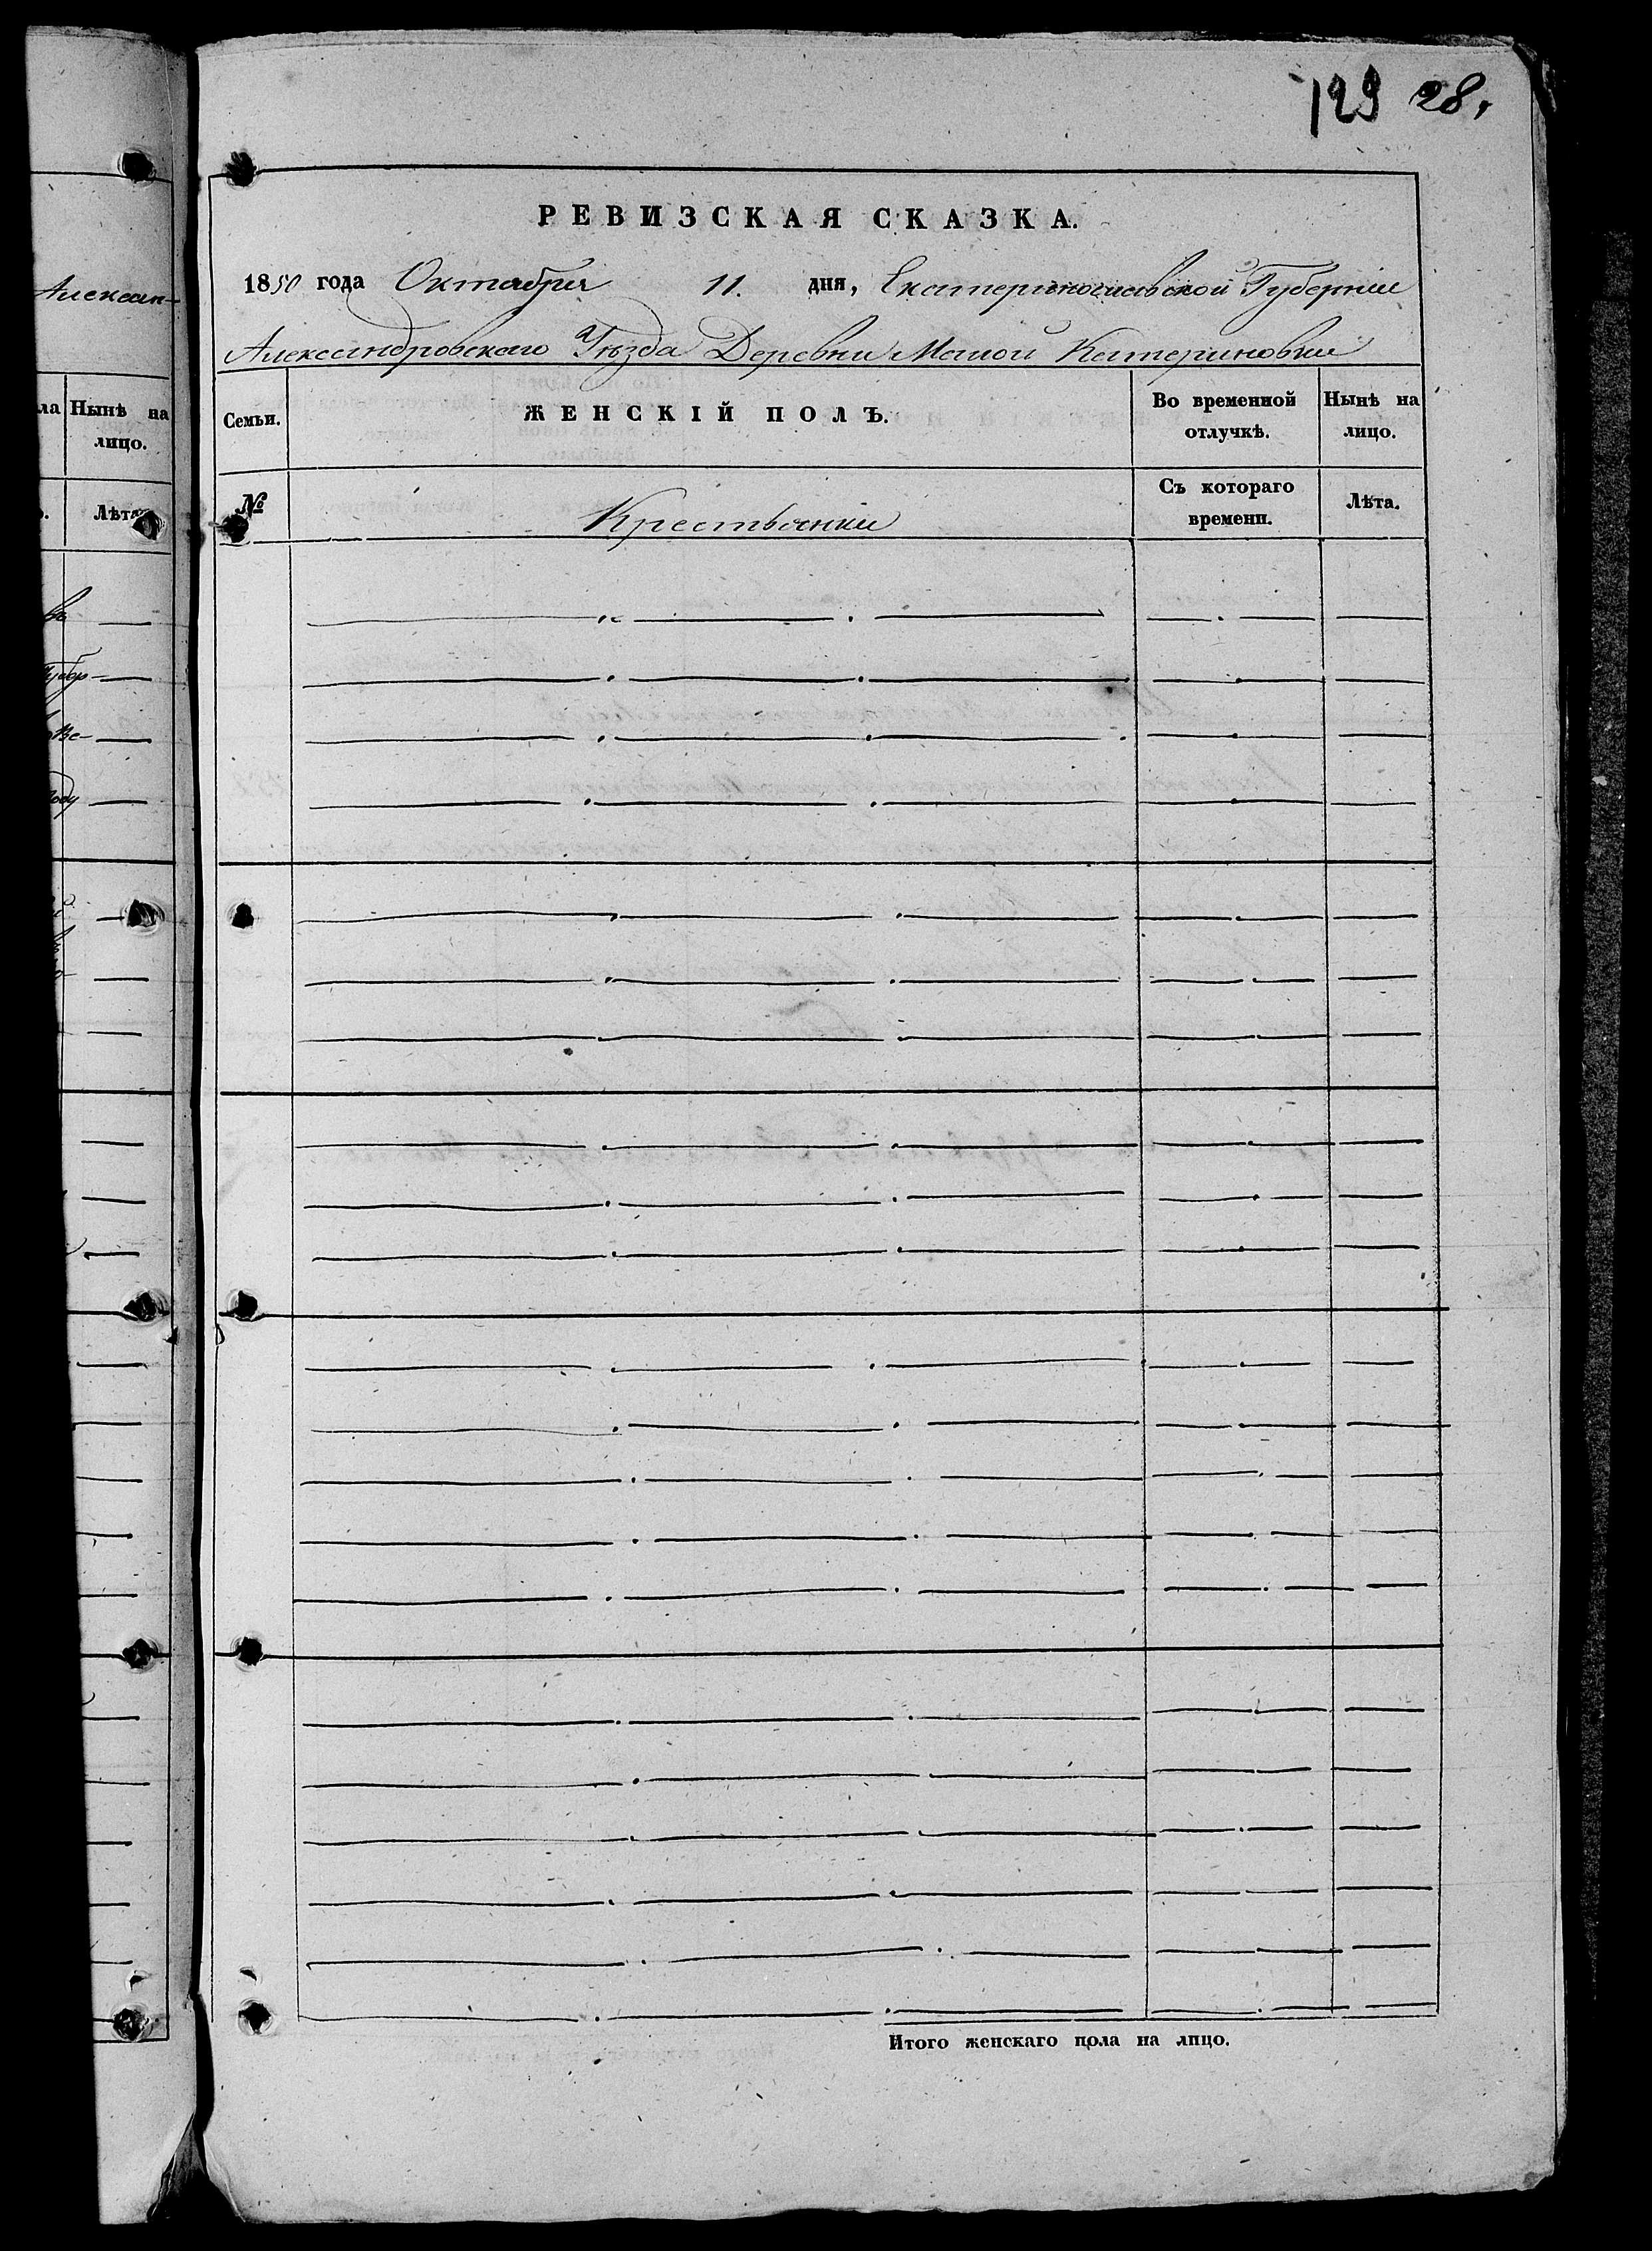 129 28.
РЕВИЗСКАЯ СКАЗКА.
1850 года Октября 11. дня, Екатеринославской Губерніи
Александровскаго Уѣзда Деревни Малой Катериновки
Семьи. ЖЕНСКІЙ ПОЛЪ. Во временной отлучкѣ. Нынѣ на лицо.
№ Крестьянки Съ котораго времени. Лѣта.
Итого женскаго пола на лицо.
Алексан-
ла Нынѣ на
лицо.
Лѣта.
во
Губер-
Ве-
году